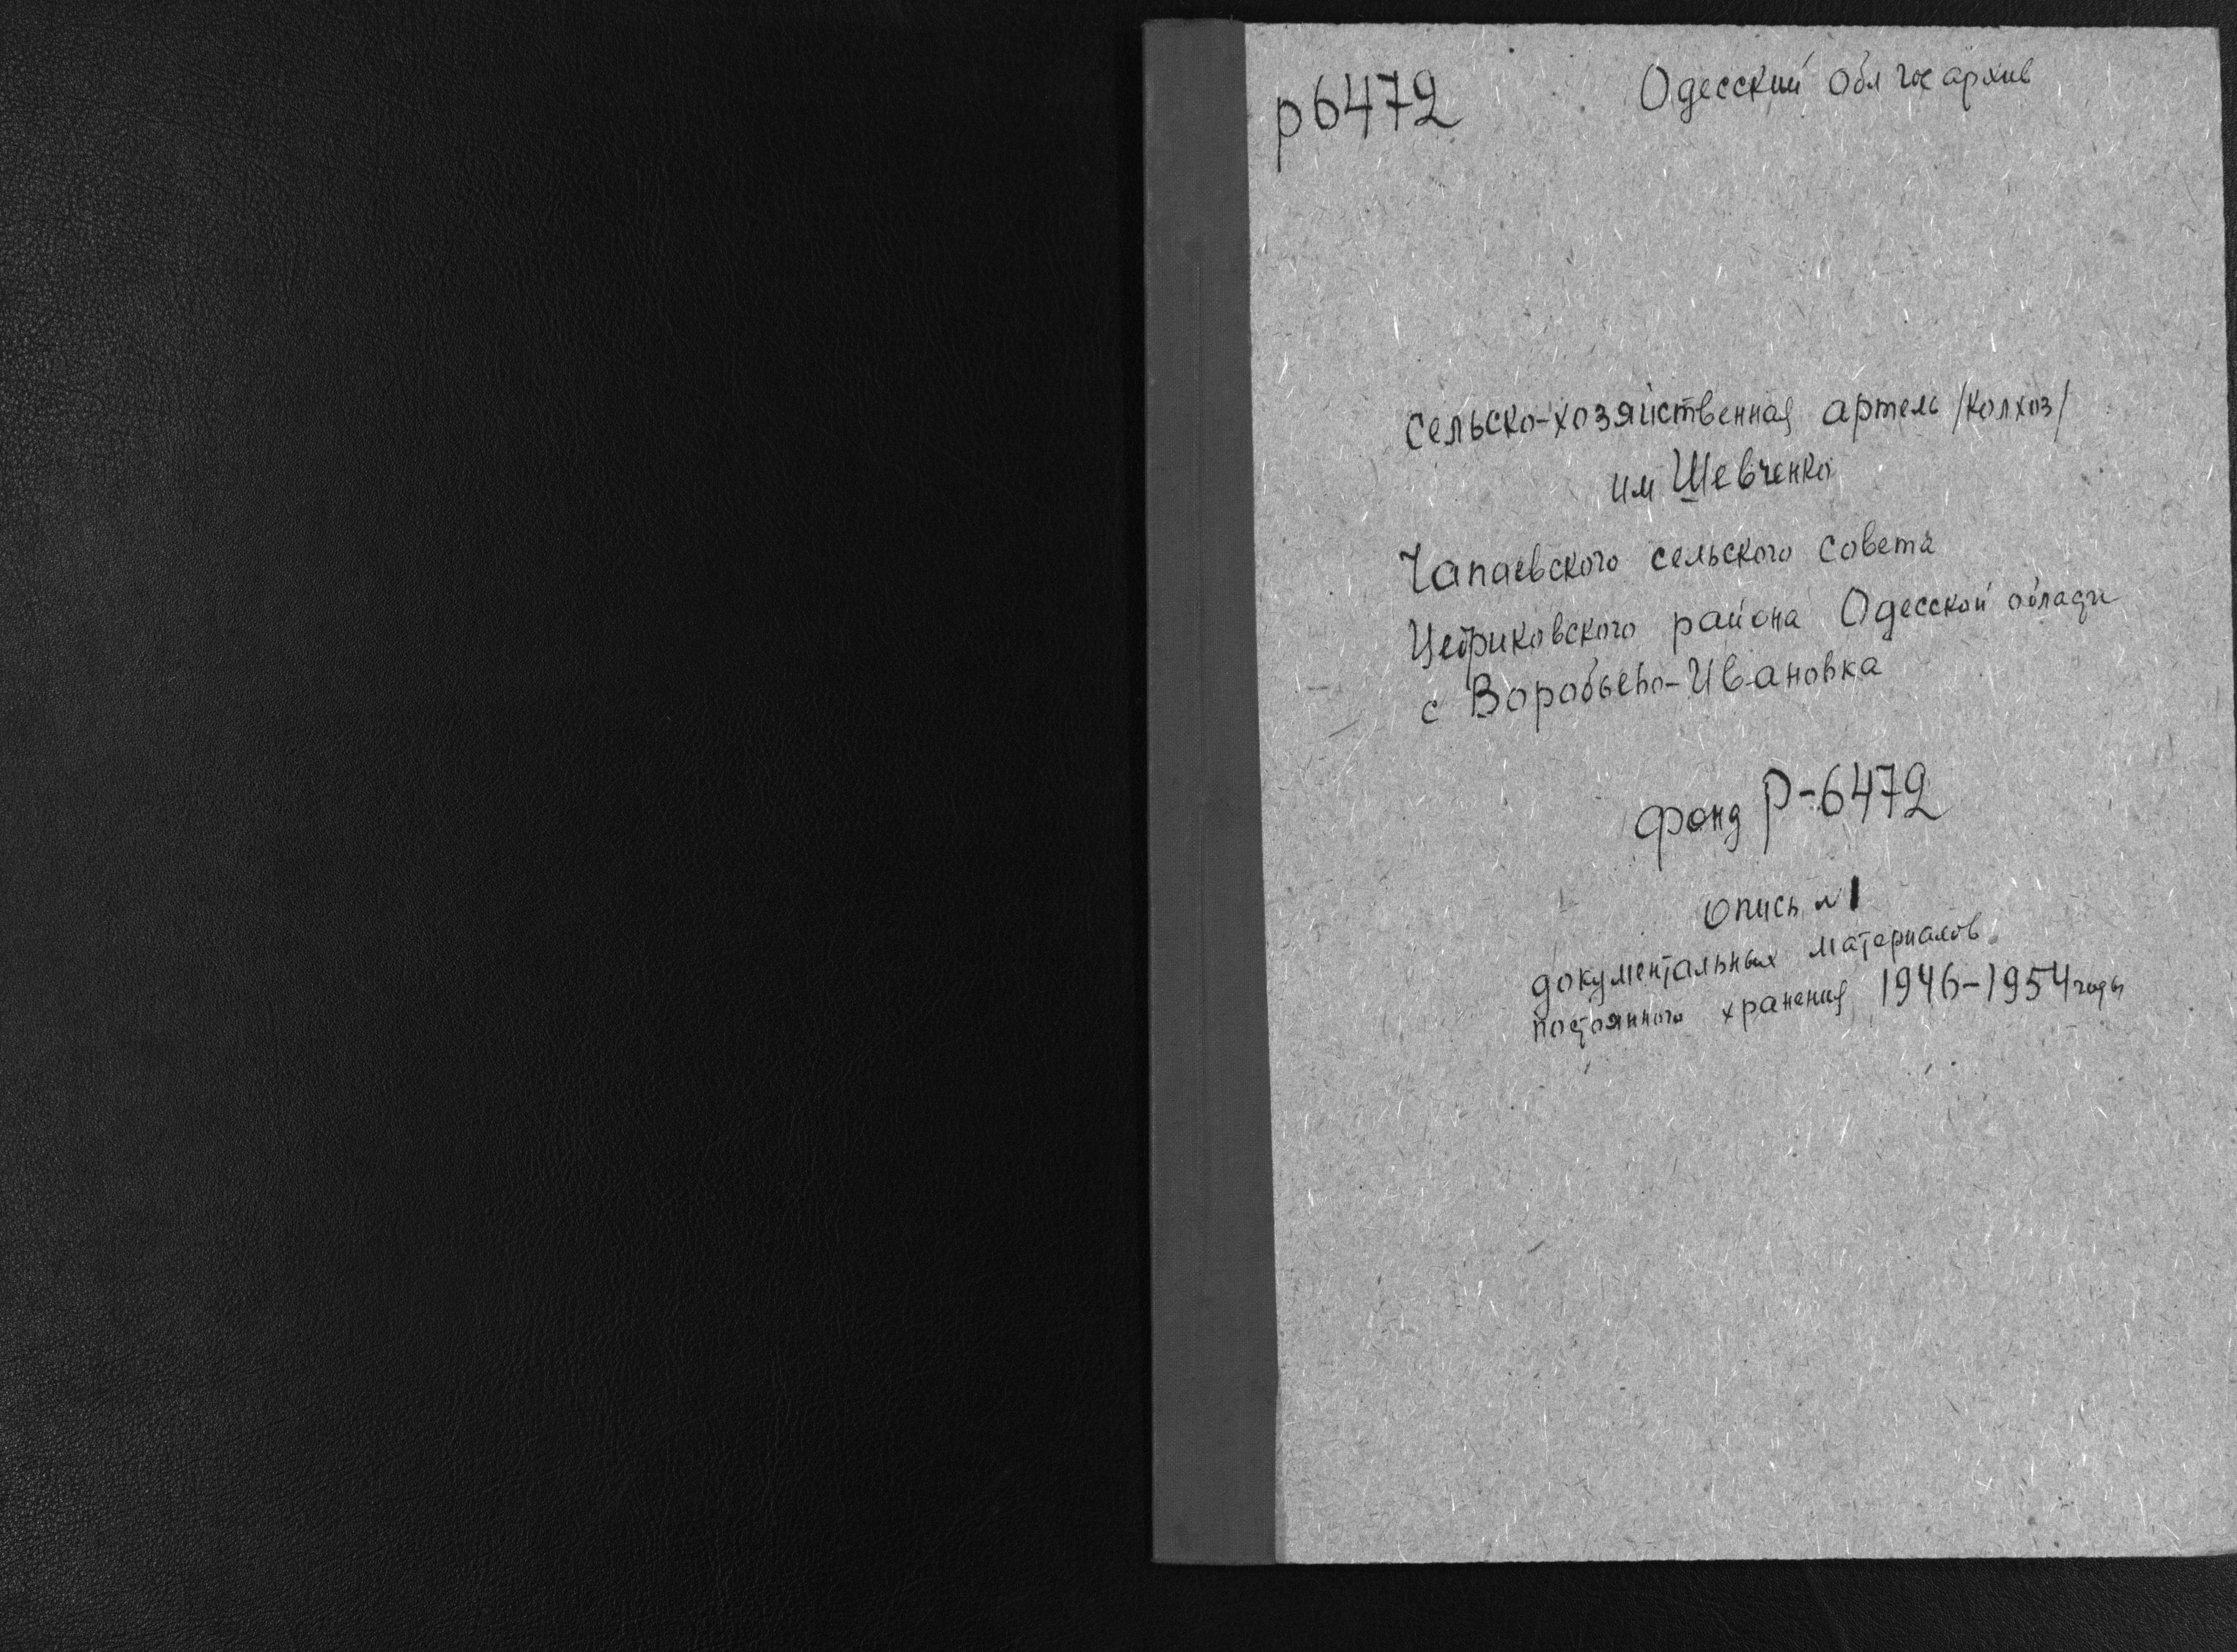 р6472
Одесский обл гос архив
Сельско-хозяйственная артель /колхоз/
им Шевченко
Чапаевского сельского совета
Цебриковского района Одесской области
с Воробьево-Ивановка
Фонд Р-6472
Опись №1
документальных материалов
постоянного хранения 1946-1954 годы